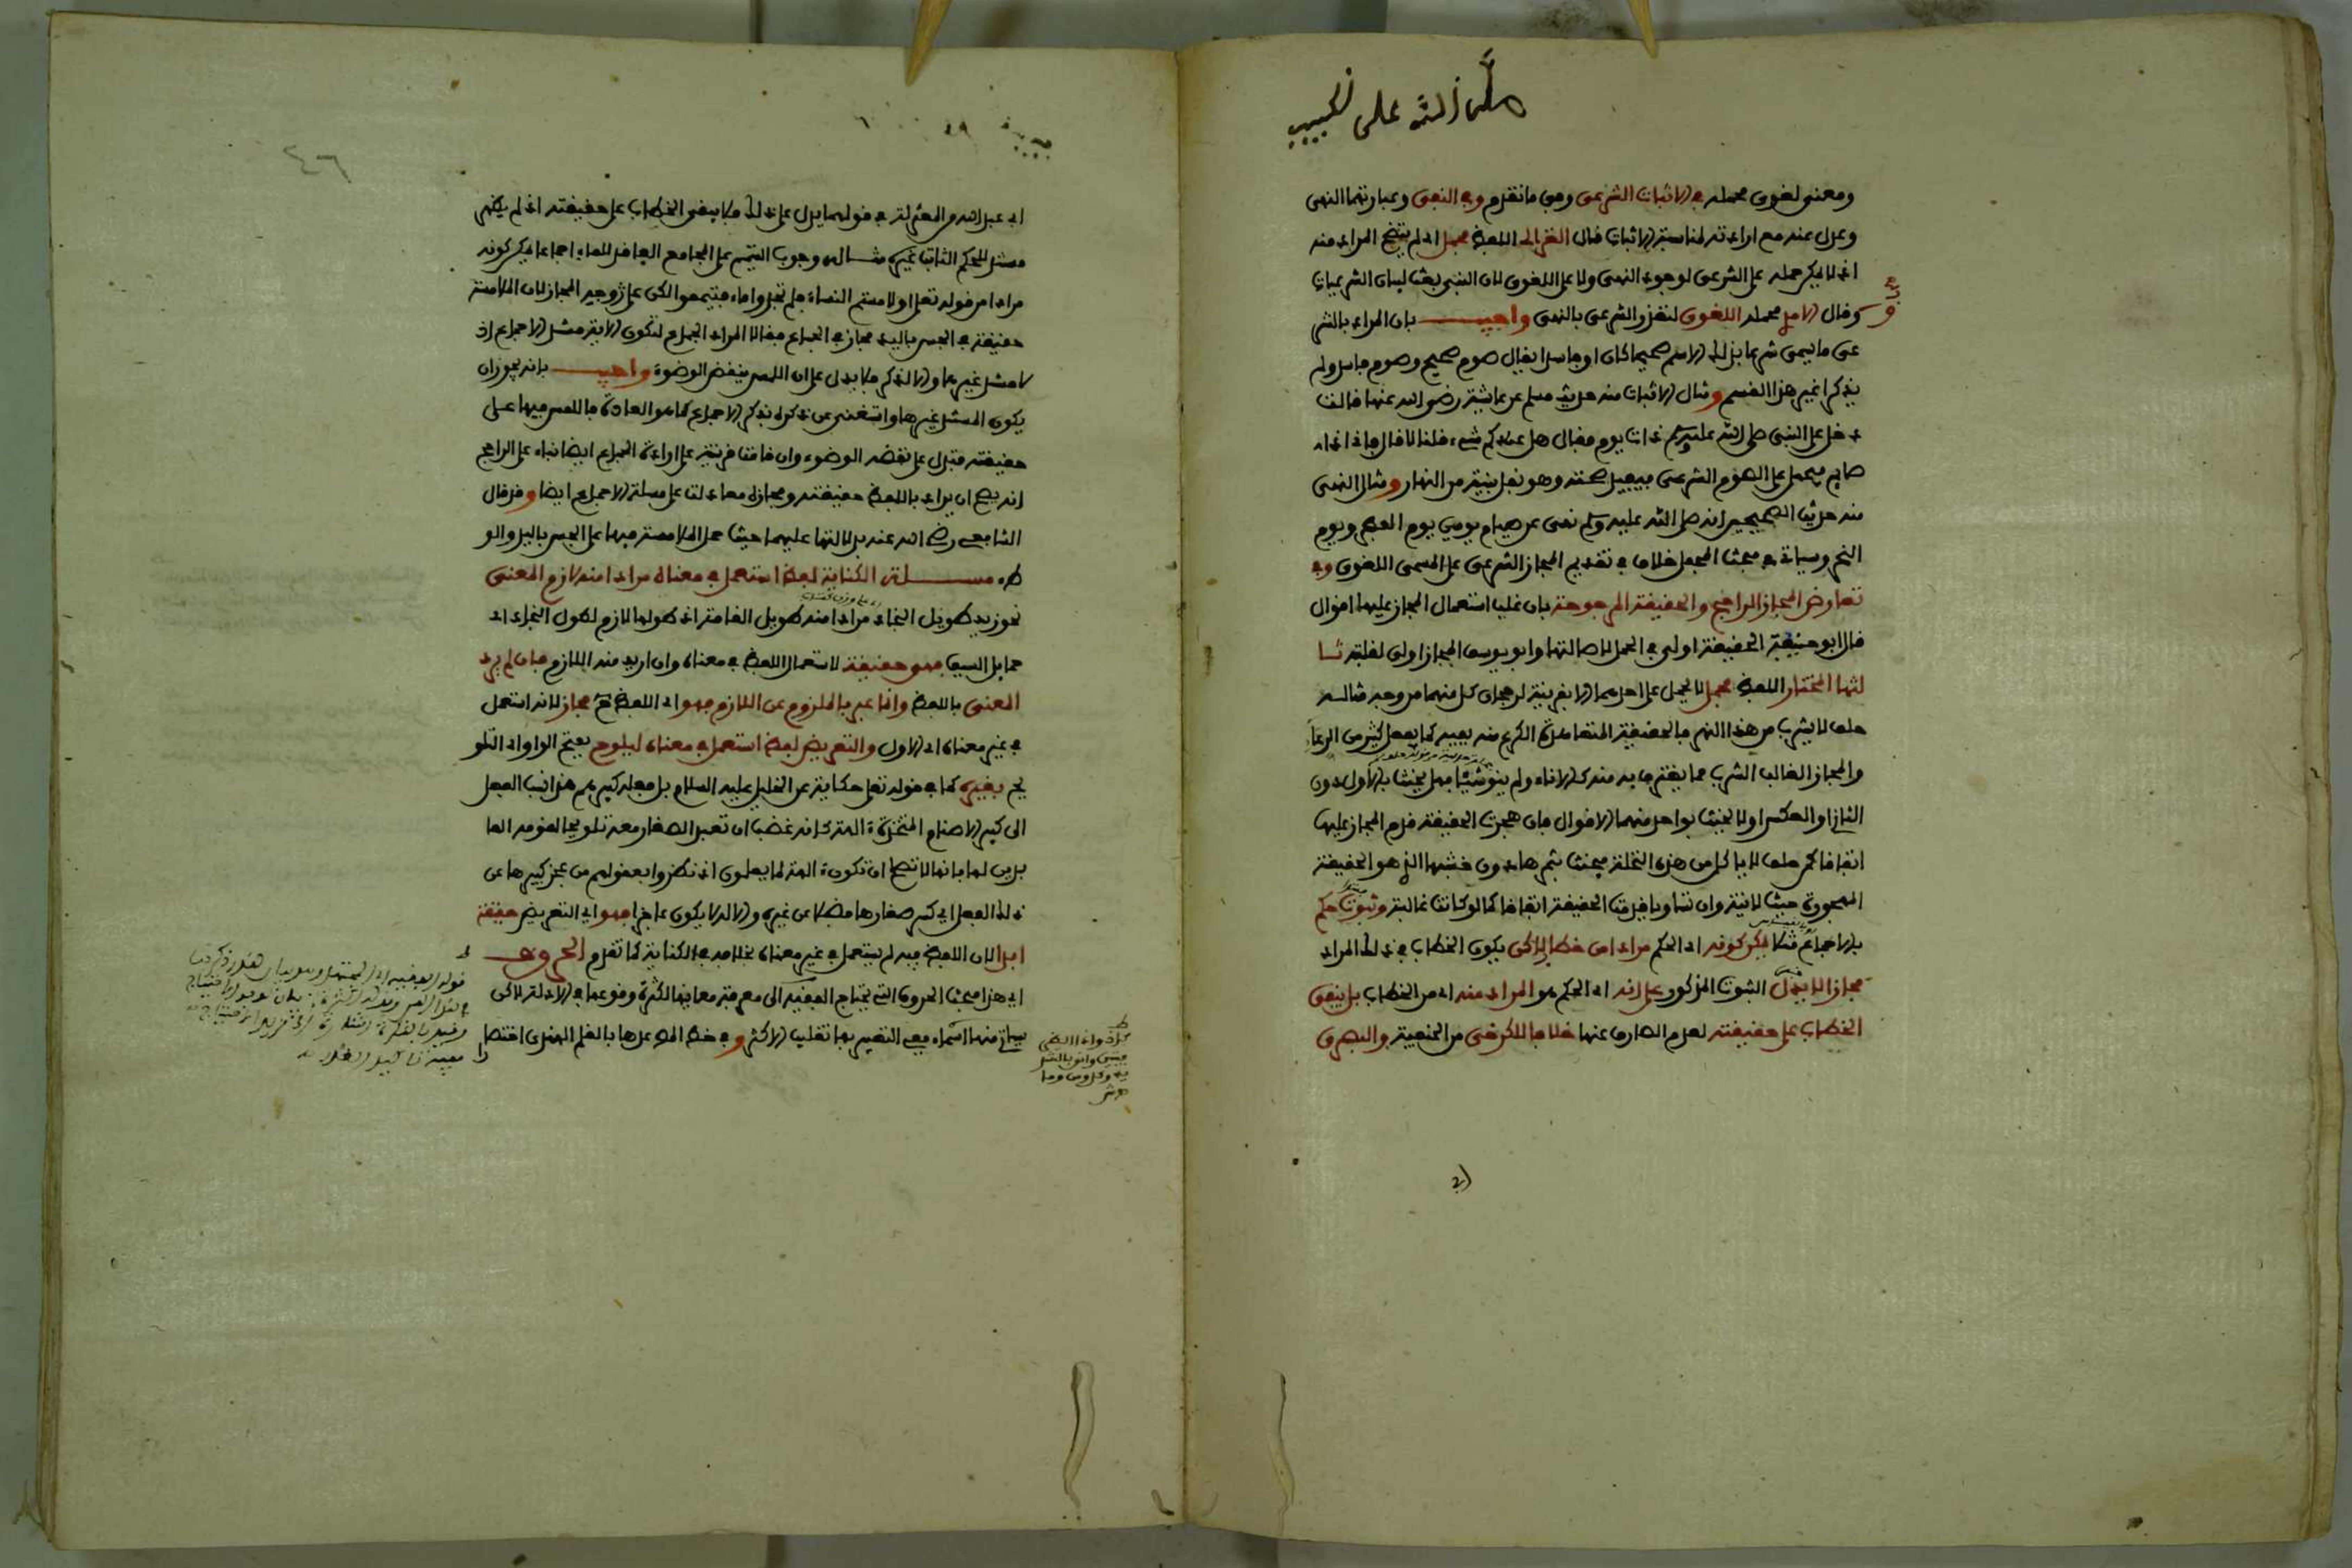 صلى الله على الحبيب
ومعنى لغوى محمله في الاثبات الشرعى وفى ما تقدم وفي النهى وعبارتهما النهى
وعدل عنه مع ارادته لمناسبة الاثبات قال الغزالى اللفظ مجمل اى لم يتضح المراد منه
اذ لا يمكن حمله على الشرعى لوجود النهى ولا على اللغوى لان النبى بعث لبيان الشرعيات
وقال الامدى محمله اللغوى لتعذر الشرعى بالنهى واجيب بان المراد بالشر
عى ما يسمى شرعا بذلك الاسم صحيحا كان او فاسدا يقال صوم صحيح وصوم فاسد ولم
يذكرا غير هذا القسم ومثال الاثبات منه حديث مسلم عن عائشة رضى الله عنها قالت
دخل على النبى صلى الله عليه وسلم ذات يوم فقال هل عندكم شيء قلنا لا قال فانى اذا
صايم فيحمل على الصوم الشرعى فيفيد صحته وهو نفل بنية من النهار ومثال النهى
منه حديث الصحيحين انه صلى الله عليه وسلم نهى عن صيام يومين يوم الفطر ويوم
النحر وسياتي في مبحث المجمل خلاف في تقديم المجاز الشرعى على المسمى اللغوى وفي
تعارض المجاز الراجح والحقيقة المرجوحة بان غلب استعمال المجاز عليها اقوال
قال ابو حنيفة الحقيقة اولى في الحمل لاصالتها وابو يوسف المجاز اولى لغلبته ثا
لثها المختار اللفظ مجمل لا يحمل على احدهما الا بقرينة لرجحان كل منهما من وجه مثاله
حلف لا يشرب من هذا النهر فالحقيقة المتعاهدة الكرع منه بفيه كما يفعل كثير من الرعاء
والمجاز الغالب الشرب مما يغترف به منه كالاناء ولم ينو شيئا فهل يحنث بالاول دون
الثاني او العكس او لا يحنث بواحد منهما الاقوال فان هجرت الحقيقة قدم المجاز عليها
اتفاقا كمن حلف لا ياكل من هذه النخلة فيحنث بثمرها دون خشبها الذى هو الحقيقة
المهجورة حيث لا نية وان تساويا قدمت الحقيقة اتفاقا كما لو كانت غالبة وثبوت حكم
بالاجماع مثلا يمكن كونه اى الحكم مرادا من خطاب لكن يكون الخطاب في ذلك المراد
مجازا لا يدل الثبوت المذكور على انه اى الحكم هو المراد منه اى من الخطاب بل يبقى
الخطاب على حقيقته لعدم الصارف عنها خلافا للكرخى من الحنفية والبصرى
ابى عبد الله من المعتزلة في قولهما يدل على ذلك فلا يبقى الخطاب على حقيقته اذ لم يظهر
مستند للحكم الثابت غيره مثاله وجوب التيمم على المجامع الفاقد للماء اجماعا يمكن كونه
مرادا من قوله تعلى او لامستم النساء فلم تجدوا ماء فتيمموا لكن على وجه المجاز لان الملامسة
حقيقة في الجس باليد مجاز في الجماع فقالا المراد الجماع لتكون الاية مستند الاجماع اذ
لا مستند غيرها والا لذكر فلا يدل على ان اللمس ينقض الوضوء واجيب بانه يجوز ان
يكون المستند غيرها واستغنى عن ذكره بذكر الاجماع كما هو العادة فاللمس فيها على
حقيقته فتدل على نقضه الوضوء وان قامت قرينة على ارادة الجماع ايضا بناء على الراجح
انه يصح ان يراد باللفظ حقيقته ومجازه معا دلت على مسئلة الاجماع ايضا وقد قال
الشافعى رضي الله عنه بدلالتها عليهما حيث حمل الملامسة فيها على الجس باليد والو
طء مسئلة الكناية لفظ استعمل في معناه مرادا منه لازم المعنى
نحو زيد طويل النجاد مرادا منه طويل القامة اذ طولها لازم لطول النجاد اى
حمايل السيف فهو حقيقة لاستعمال اللفظ في معناه وان اريد منه اللازم فان لم يرد
المعنى باللفظ وانما عبر بالملزوم عن اللازم فهو اى اللفظ ح مجاز لانه استعمل
في غير معناه اى الاول والتعريض لفظ استعمل في معناه ليلوح بفتح الواو اى التلو
يح بغيره كما في قوله تعلى حكاية عن الخليل عليه السلام بل فعله كبيرهم هذا نسب الفعل
الى كبير الاصنام المتخذة الهة كانه غضب ان تعبد الصغار معه تلويحا لقومه العا
بدين لها بانها لا تصلح ان تكون الهة لما يعلمون اذ نظروا بعقولهم من عجز كبيرها عن
ذلك الفعل اى كسر صغارها فضلا عن غيره والاله لا يكون عاجزا فهو اى التعريض حقيقة
ابدا لان اللفظ فيه لم يستعمل في غير معناه بخلافه في الكناية كما تقدم الحروف
اى هذا مبحث الحروف التى يحتاج الفقيه الى معرفة معانيها لكثرة وقوعها في الادلة لكن
سياتى منها اسماء ففى التعبير بها تغليب الاكثر وفي خط المص عدها بالقلم الهندى اختصا